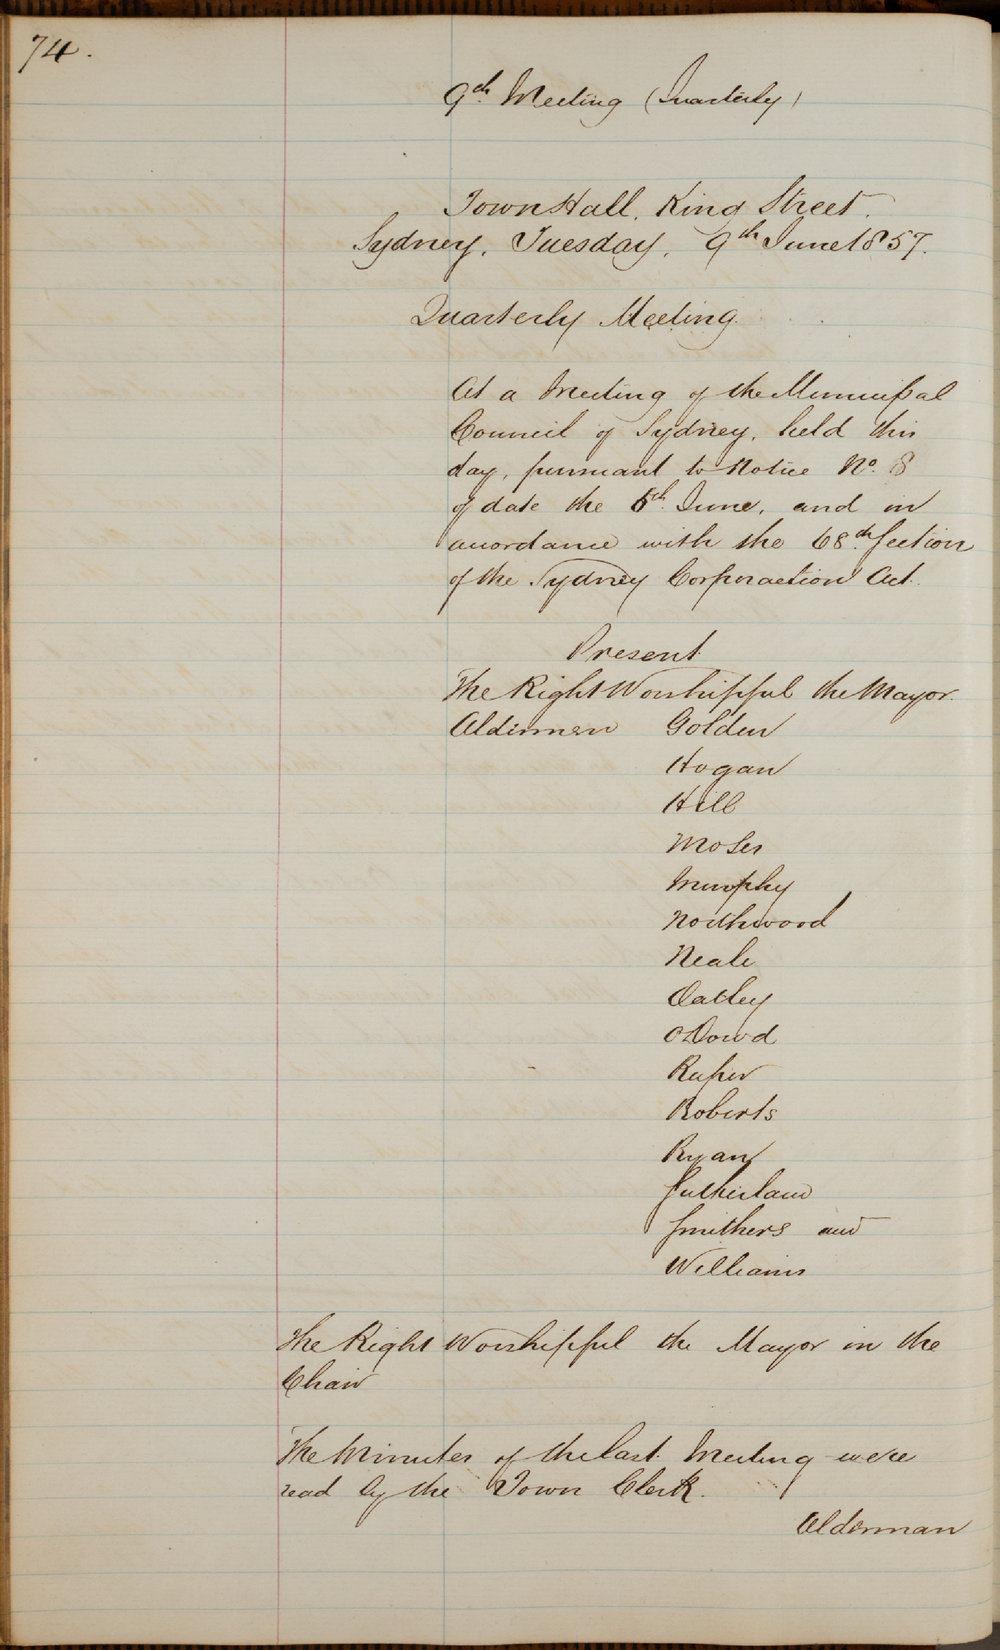 74.
9th Meeting (Quarterly)
Town Hall. King Street.
Sydney. Tuesday. 9th June 1857.
Quarterly Meeting.
At a Meeting of the Municipal
Council of Sydney, held this
day, pursuant to Notice No. 8
of date the 5th June, and in
accordance with the 68th Section
of the Sydney Corporaetion Act.
Present
The Right Worshipful the Mayor.
Aldermen Golden
Hogan
Hill
Moses
Murphy
Northwood
Neale
Oatley
O'Dowd
Raper
Roberts
Ryan
Sutherland
Smithers and
Williams
The Right Worshipful the Mayor in the
Chair
The Minutes of the last Meeting were
read by the Town Clerk.
Alderman